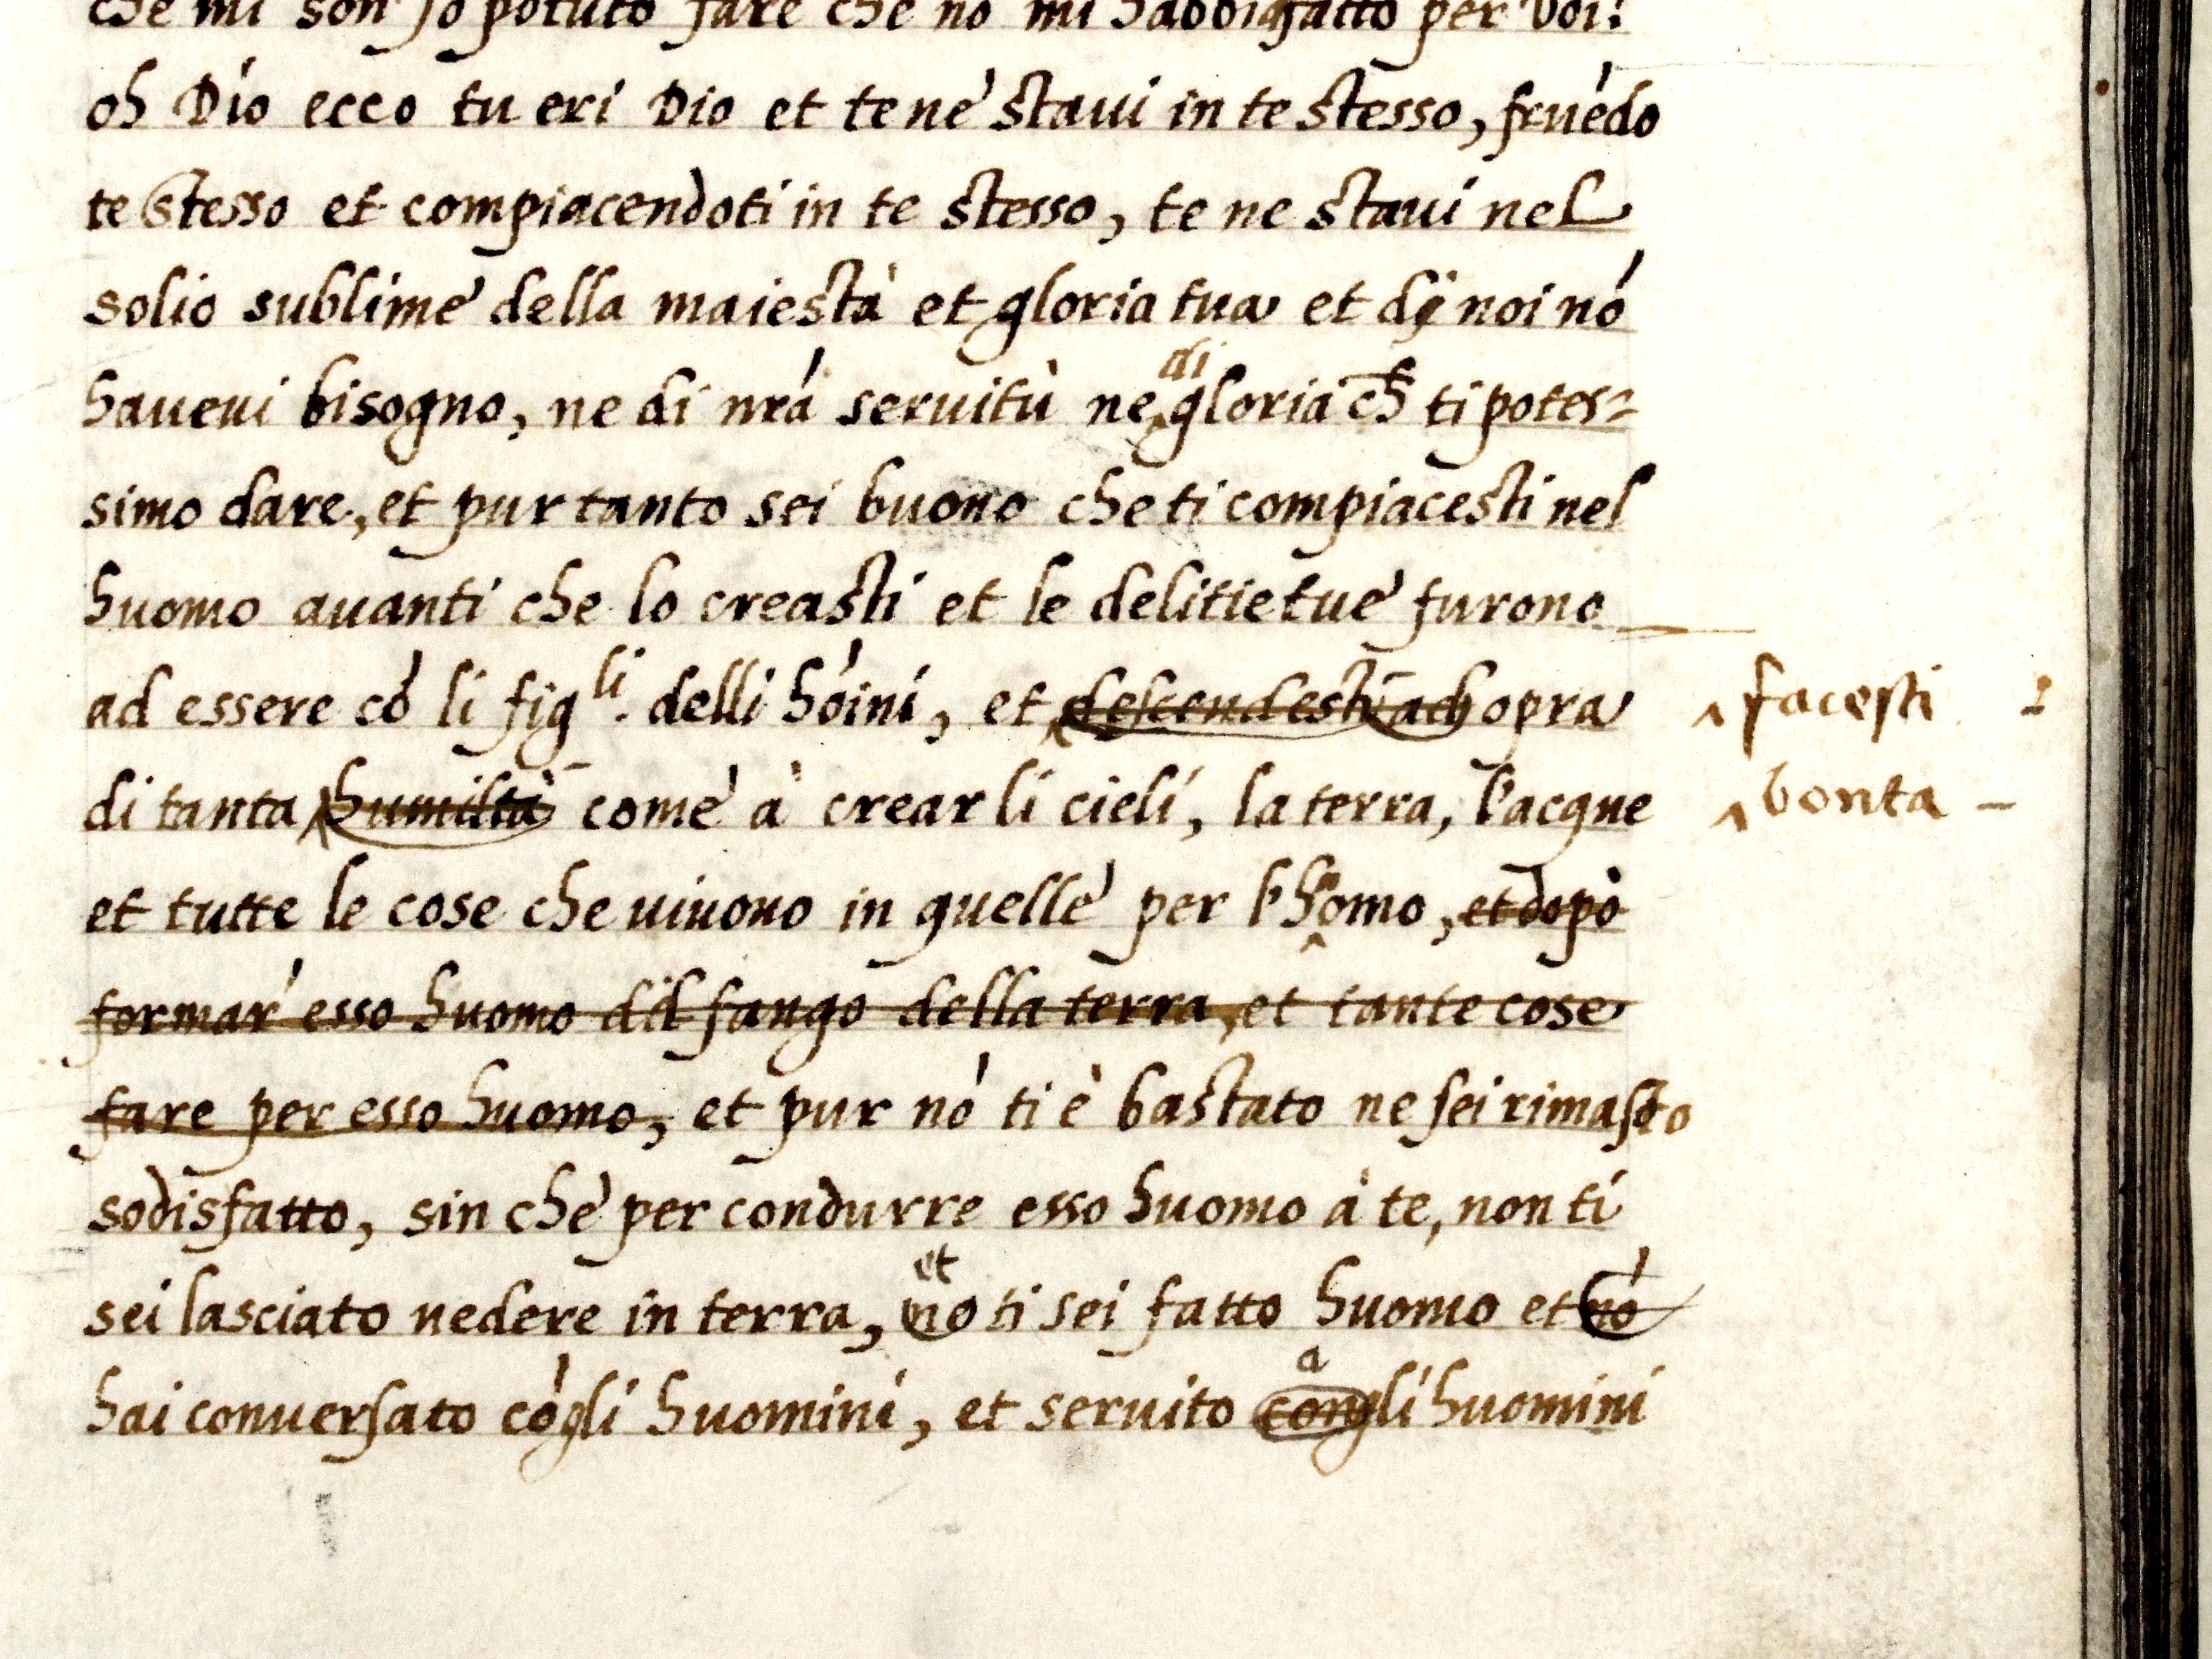 che mi son jo potuto fare che nó mi habbi fatto per voi!
oh Dio ecco tu eri Dio et te ne staui in te stesso, fruédo
te stesso et compiacendoti in te stesso, te ne staui nel
solio sublime della maiestà et gloria tua et di noi nó
di
haueui bisogno, ne di nrá seruitù ne gloria ch ti potes=
simo dare, et pur tanto sei buono che ti compiacesti nel
huomo auanti che lo creasti et le delitie tue furono
ad essere có li figli. delli hóini, et descendesti ad opra ‸facesti
di tanta humiltà come à crear li cieli, la terra, l'acque ‸bonta -
et tutte le cose che uiuono in quelle per l'huomo, et dopò
formar esso huomo del fango della terra, et tante cose
fare per esso huomo, et pur nó ti è bastato ne sei rimasto
sodisfatto, sin che per condurre esso huomo à te, non ti
et
sei lasciato uedere in terra, no ti sei fatto huomo et nó
a
hai conuersato cógli huomini, et seruito congli huomini